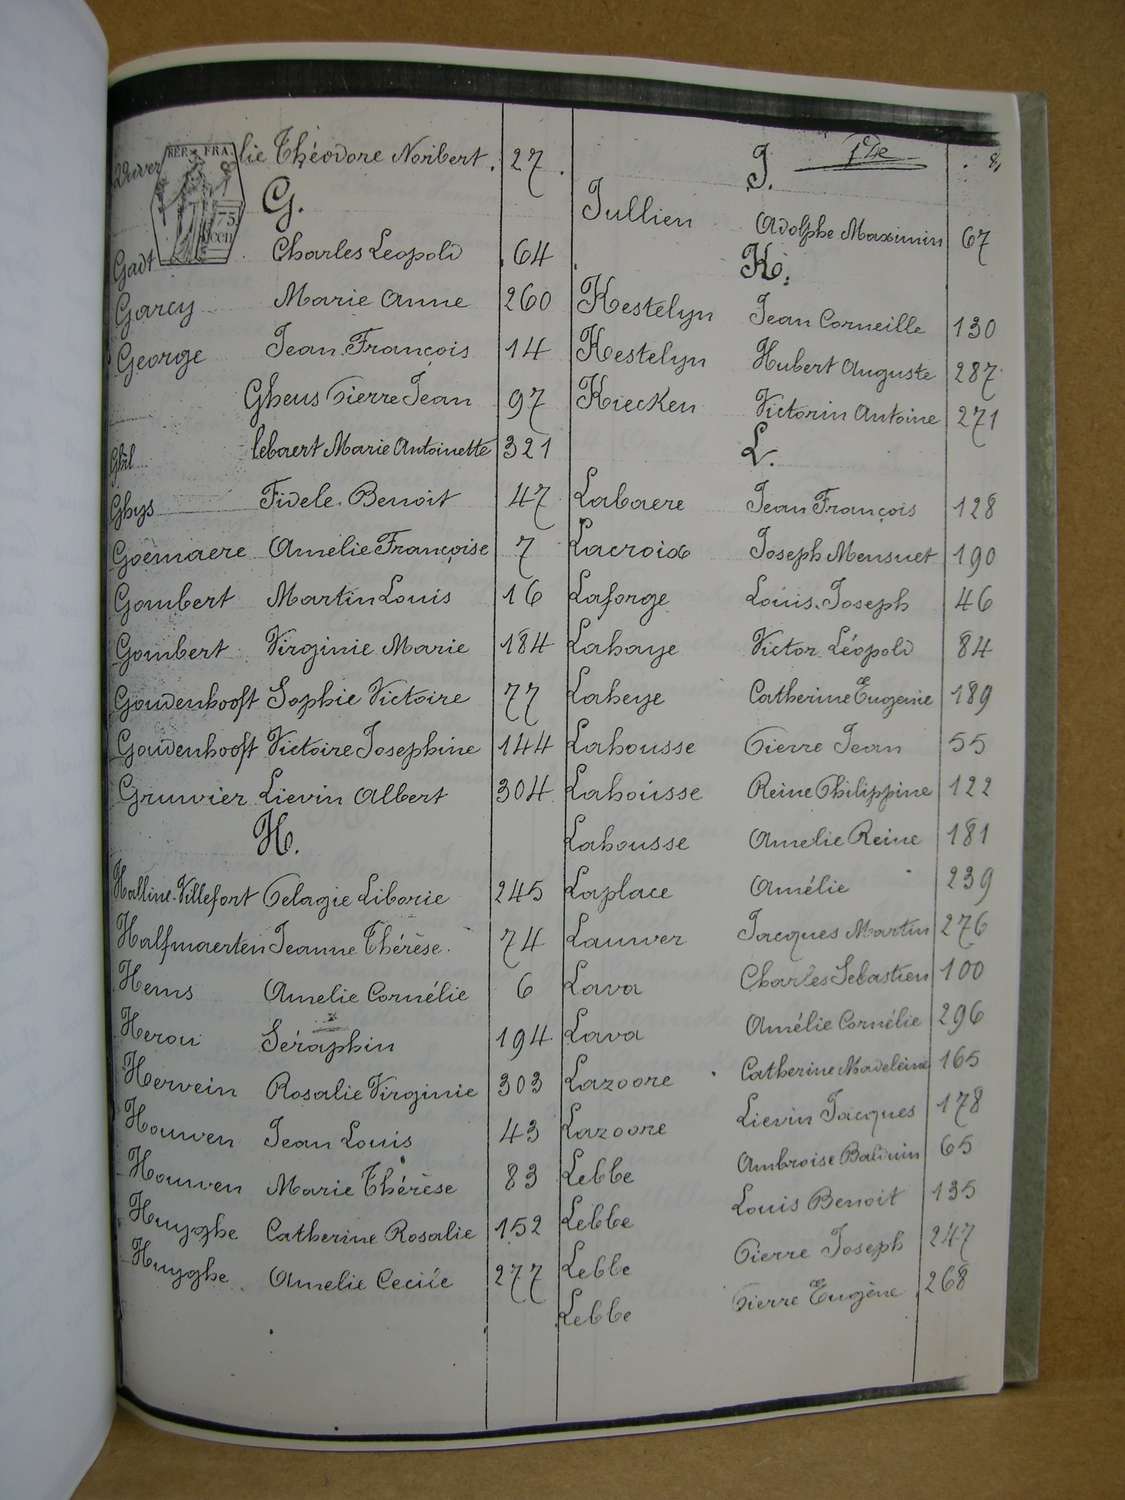 lie Théodore Noribert. 27.
REP. FRA.
75
cen
G.
Gadt Charles Leopold 64
Garcy Marie Anne 260
George Jean François 14
Gheus Pierre Jean 97
Ghil lebaert Marie Antoinette 321
Ghys Fidele Benoit 47
Goemaere Amélie Françoise 7
Gombert Martin Louis 16
Gombert Virginie Marie 184
Goudenhooft Sophie Victoire 77
Goudenhooft Victoire Josephine 144
Gruwier Lievin Albert 304
H.
Halline-Villefort Pelagie Liborie 245
Halfmaerten Jeanne Thérèse 74
Hems Amelie Cornélie 6
Herou Séraphin 194
Hervein Rosalie Virginie 303
Houwen Jean Louis 43
Houwen Marie Thérèse 83
Huyghe Catherine Rosalie 152
Huyghe Amelie Cecile 277
J.
Jullien Adolphe Maximin 67
K.
Kestelyn Jean Corneille 130
Kestelyn Hubert Auguste 287
Kiecken Victorin Antoine 271
L.
Labaere Jean François 128
Lacroix Joseph Mensuet 190
Laforge Louis Joseph 46
Lahaye Victor Léopold 84
Laheye Catherine Eugenie 189
Lahousse Pierre Jean 55
Lahousse Reine Philippine 122
Lahousse Amelie Reine 181
Laplace Amélie 239
Lauwer Jacques Martin 276
Lava Charles Sebastien 100
Lava Amélie Cornélie 296
Lazoore Catherine Madeleine 165
Lazoore Lievin Jacques 178
Lebbe Ambroise Balduin 65
Lebbe Louis Benoit 135
Lebbe Pierre Joseph 247
Lebbe Pierre Eugène 268